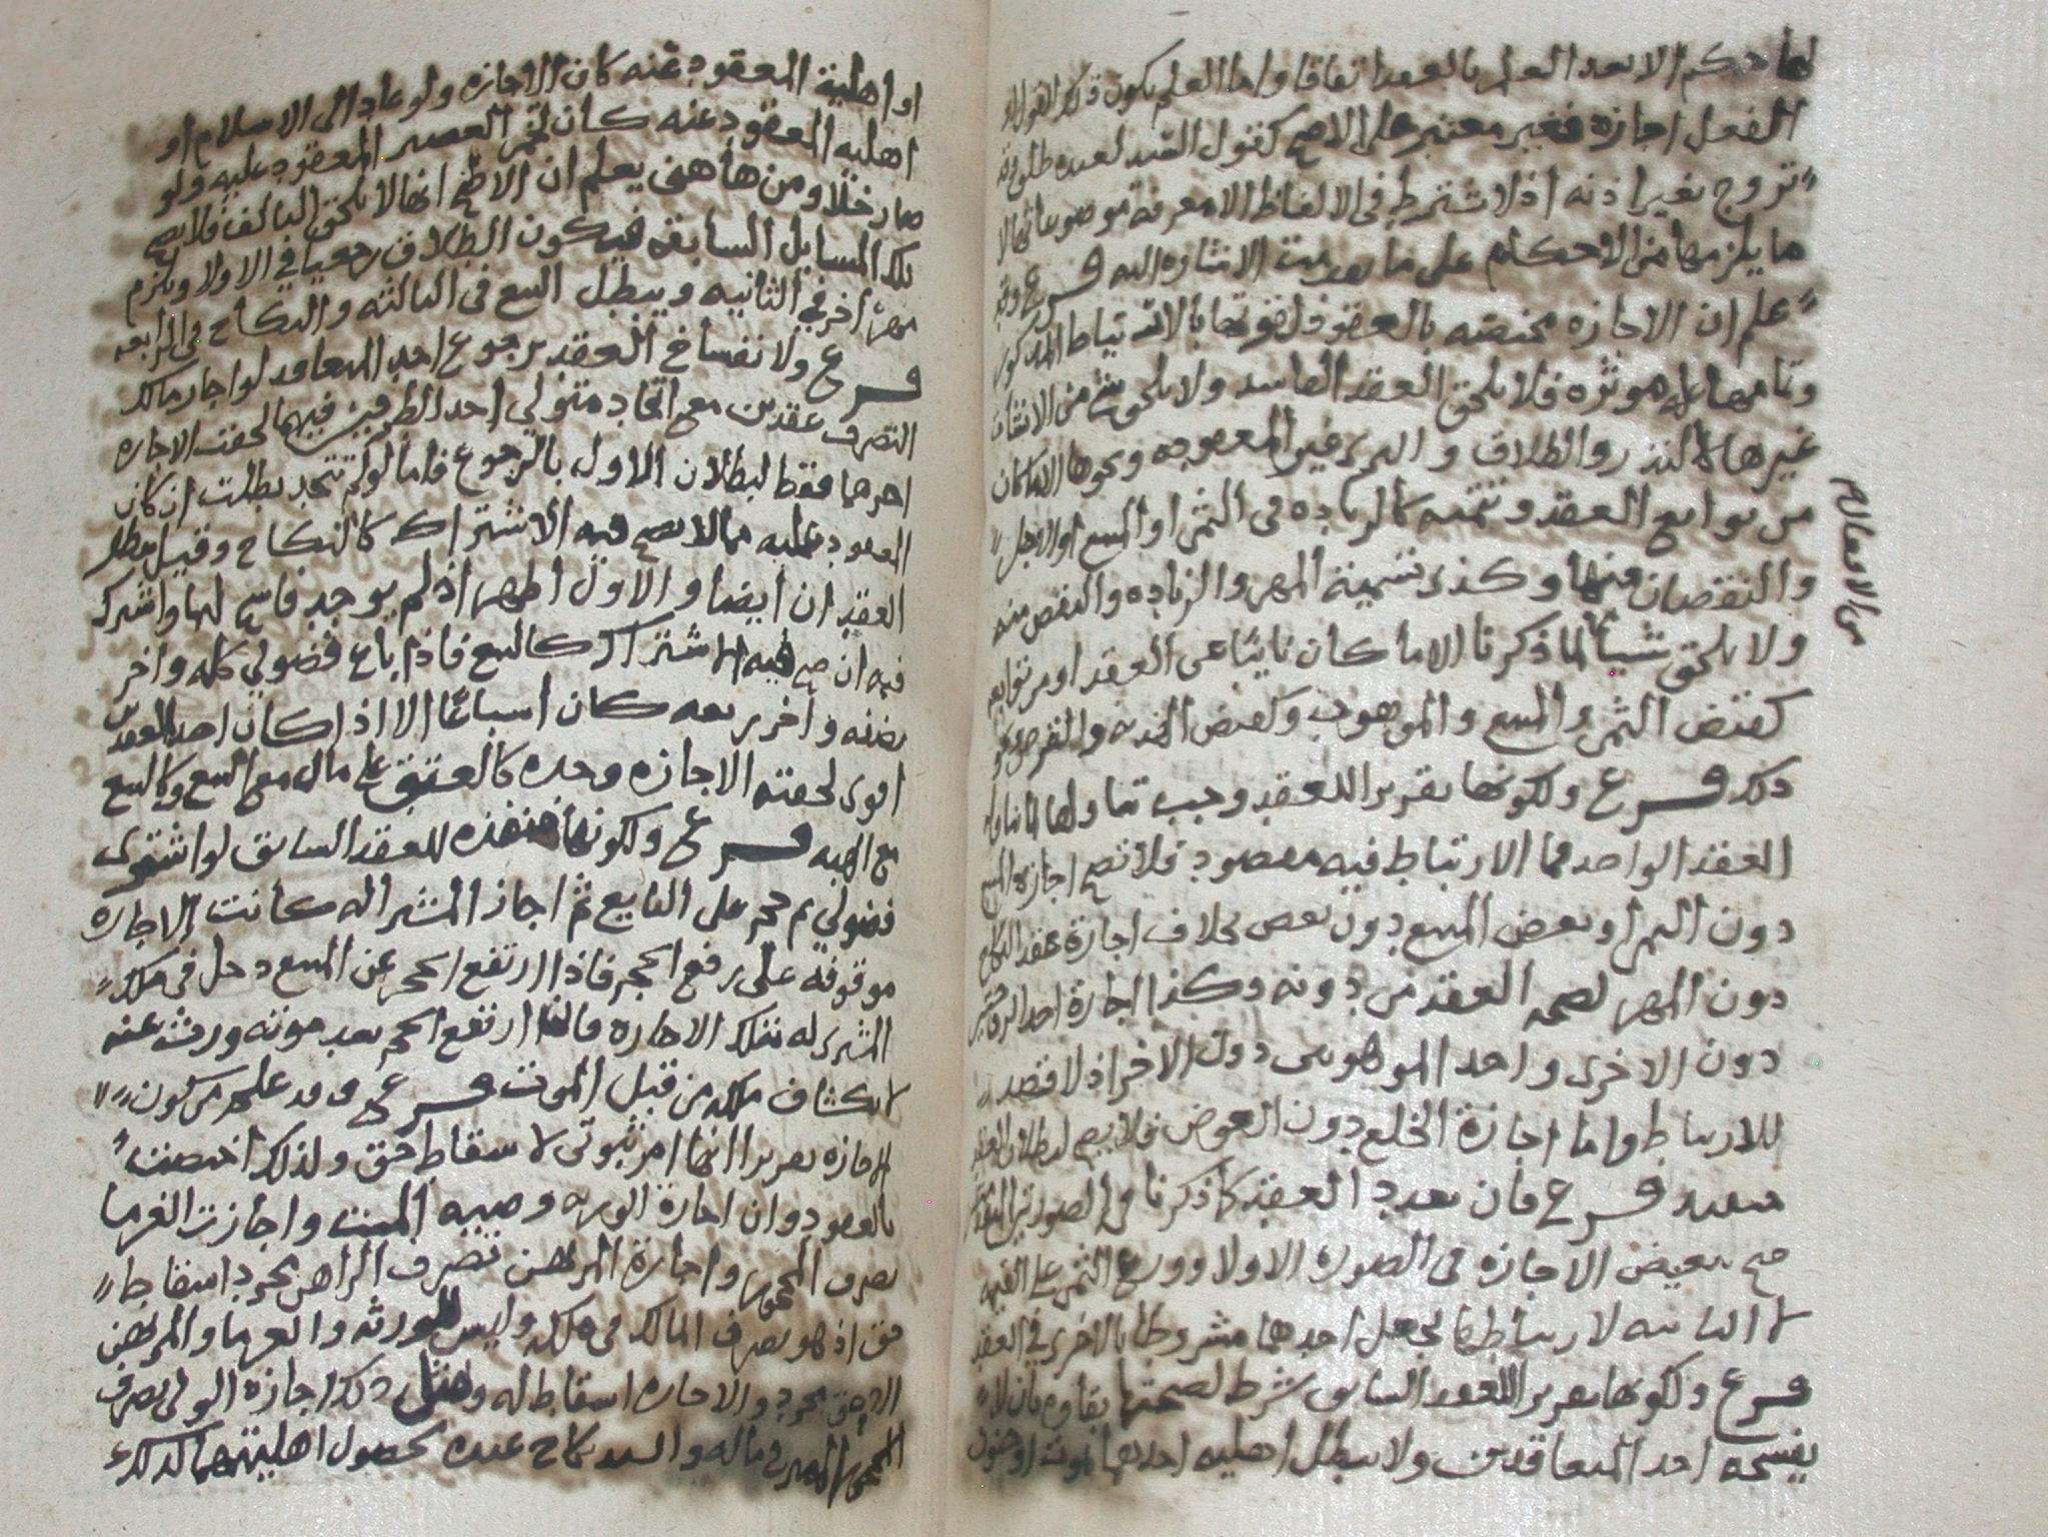 لها حكم الا بعد العلم بالعقد اتفاقا واما العلم بكون ذلك القول او
الفعل اجازه فغير معتبر على الاصح كقول السيد لعبده طلق وقد
تزوج بغير اذنه اذ لا يشترط في الالفاظ الا معرفة موضوعاتها لا
ما يلزمها من الاحكام على ما تقدمت الاشاره اليه فرع وقد
علم ان الاجازه مختصه بالعقود
فلا يلحق العقد الفاسد ولا يلحق شي من الانشات
غيرها كالنذر والطلاق و ونحوها الا ما كان
من توابع العقد وتتمته كالزياده في الثمن او المبيع او الاجل
والنقصان منها وكذى تسمية المهر والزياده والنقص منه
ولا يلحق شيئا لما ذكرنا الا ما كان نايبا عن العقد او من توابعه
من الافعال
كقبض الثمن والمبيع والموهوب وكقبض
ذلك فرع ولكونها تقريرا للعقد وجب تناولها لما تناوله
العقد الواحد مما الارتباط فيه مقصود فلا تصح اجازة المبيع
دون الثمن او بعض المبيع دون بعض بخلاف اجازة عقد النكاح
دون المهر لصحة العقد من دونه وكذا اجازة احد
دون الاخرى واحد الموهوبين دون الاخر اذ لا قصد
للارتباط واما اجازة الخلع دون العوض فلا يصح لبطلان العقد
فرع فان تعدد العقد كما ذكرنا في الصورتين
صح تبعيض الاجازه في الصوره الاولا ووزع الثمن على القيمه
لا الثانيه لارتباطهما بجعل احدهما مشروطا بالاخرى في العقد
فرع ولكونها تقريرا للعقد السابق شرط لصحتها بقاوه بان لا
يفسخه احد المتعاقدين ولا يبطل اهليه احدهما بموت او جنون
او اهلية المعقود عنه كان الاجازه ولو عاد الى الاسلام او
اهليه المعقود عنه كان تخمر العصير المعقود عليه ولو
صار خلا ومن هاهنى يعلم ان الاصح انها لا تلحق التالف فلا يصح
تلك المسايل السابقه فيكون الطلاق رجعيا في الاولا ويلزم
مهرا اخر في الثانيه ويبطل البيع في الثالثه والنكاح في الرابعه
فرع ولانفساخ العقد برجوع احد المتعاقد لو اجاز مالك
التصرف عقدين مع اتحاد متولي احد الطرفين فيهما لحقت الاجازه
اخرهما فقط لبطلان الاول بالرجوع فاما لو لم تتحد بطلت ان كان
المعقود عليه مما لا يصح فيه الاشتراك كالنكاح وقيل يبطل
العقدان ايضا والاول اظهر اذ لم يوجد فاسخ لها واشرك
فيه ان صح فيه الاشتراك كالبيع فاذا باع فضولي كله واخر
نصفه واخر ربعه كان اسباعا الا اذا كان احد العقدين
اقوى لحقته الاجازه وحده كالعتق على مال مع البيع وكالبيع
مع الهبه فرع ولكونها منفذه للعقد السابق لو اشترى
فضولي ثم حجر على البايع ثم اجاز المشترا له كانت الاجازه
موقوفة على رفع الحجر فاذا ارتفع الحجر عن المبيع دخل في ملك
المشترى له بتلك الاجازه ارتفع الحجر بعد موته ورث عنه
لانكشاف ملكه من قبل الموت فرع وقد علم من كون
الاجازه تقريرا انها امر ثبوتي لا سقاط حق ولذلك اختصت
بالعقود وان اجازة الورثه وصيه الميت واجازت الغرما
تصرف المحجور واجازة المرتهن تصرف الراهن مجرد اسقاط
حق اذ هو تصرف المالك في ملكه وليس للورثه والغرما والمرتهن
الا حق مجرد والاجازه اسقاط له ومثل ذلك اجازه الولي تصرف
المميز في ماله والسيد نكاح عبده لحصول اهليتهما لذلك